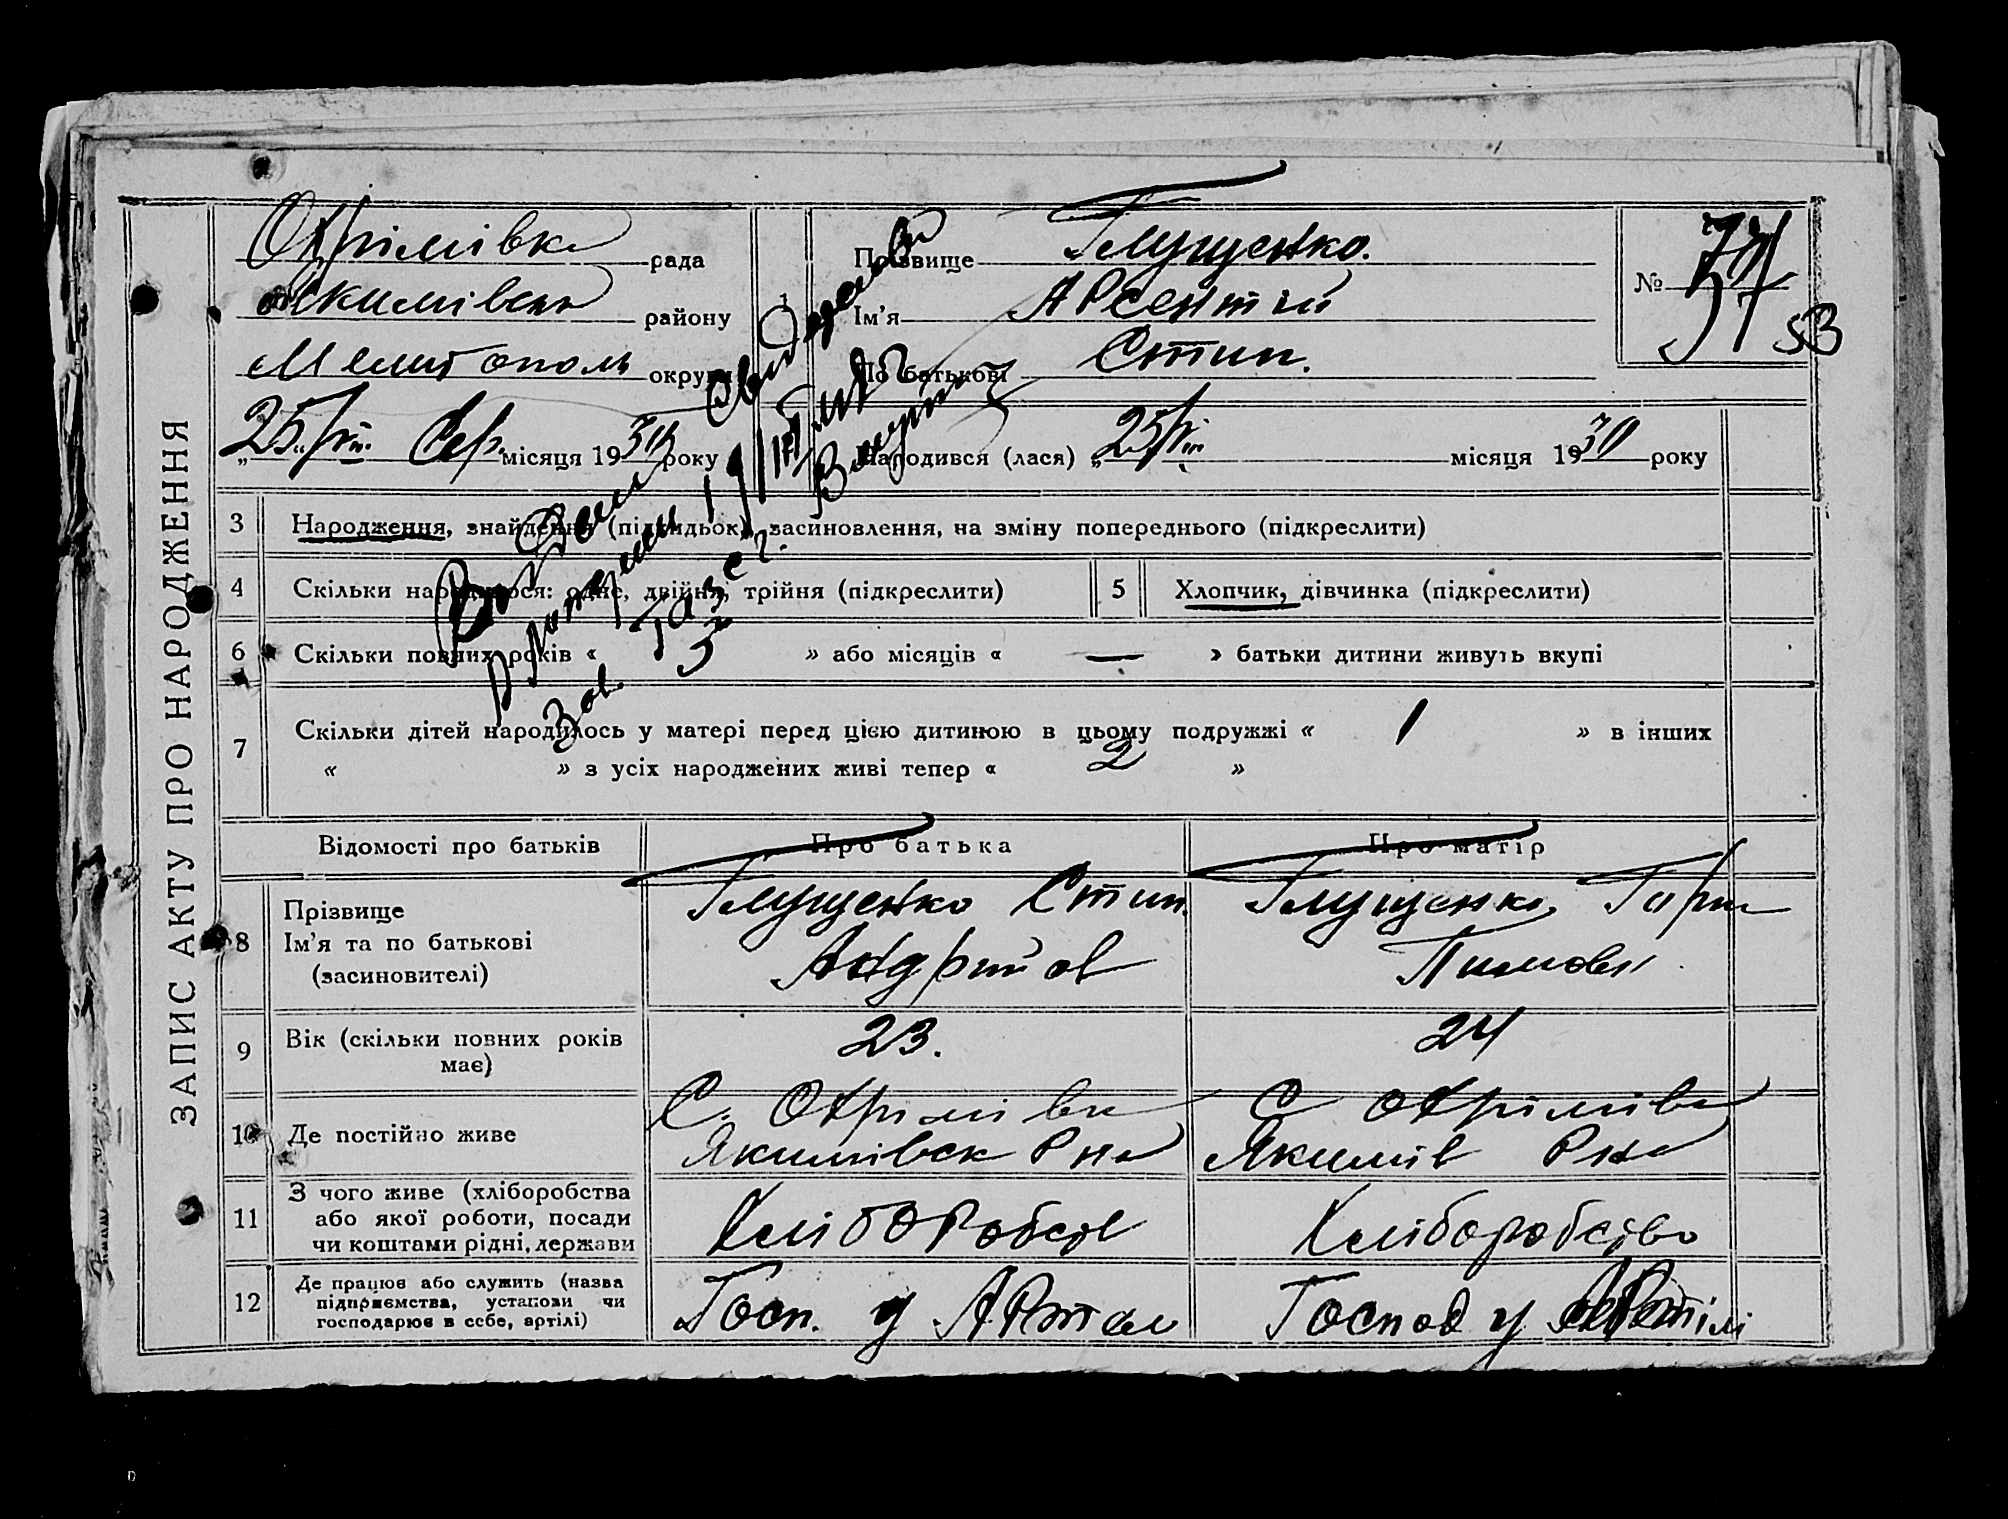 ЗАПИС АКТУ ПРО НАРОДЖЕННЯ
Охрімівка рада
Якимівськ району
Мелітополь округи
Прізвище Глущенко.
Ім'я Арсентій
По батькові Стип.
№ 37
53
25/VIII Сер. місяця 1930 року
Народився (лася) „ 25/VIII місяця 1930 року
3 Народження, знайдення (підкидьок), засиновлення, на зміну попереднього (підкреслити)
4 Скільки народилося: одне, двійня, трійня (підкреслити)
5 Хлопчик, дівчинка (підкреслити)
6 Скільки повних років « » або місяців « — » батьки дитини живуть вкупі
7 Скільки дітей народилось у матері перед цією дитиною в цьому подружжі « 1 » в інших
« » з усіх народжених живі тепер « 2 »
Відомості про батьків Про батька Про матір
8 Прізвище
Ім'я та по батькові
(засиновителі)
Глущенко Стип.
Андрийов
Глущенко
Пимовн
9 Вік (скільки повних років
має)
23.
24
10 Де постійно живе
С. Охрімівка
Якимівск Рна
С Охрімівка
Якимів Рна
11 З чого живе (хліборобства
або якої роботи, посади
чи коштами рідні, держави
Хліборобств
Хліборобство
12 Де працює або служить (назва
підприємства, установи чи
господарює в себе, артілі)
Госп. у Артіл
Господ у Артілі
Видани
Зав Загс